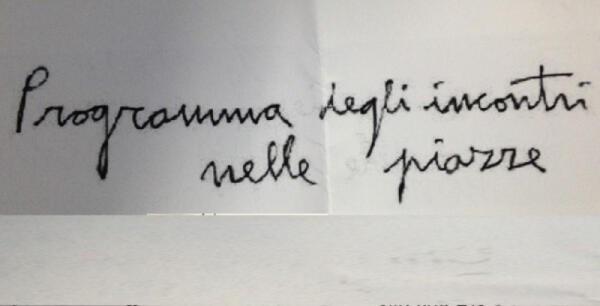 Programma degli incontri
nelle piazze